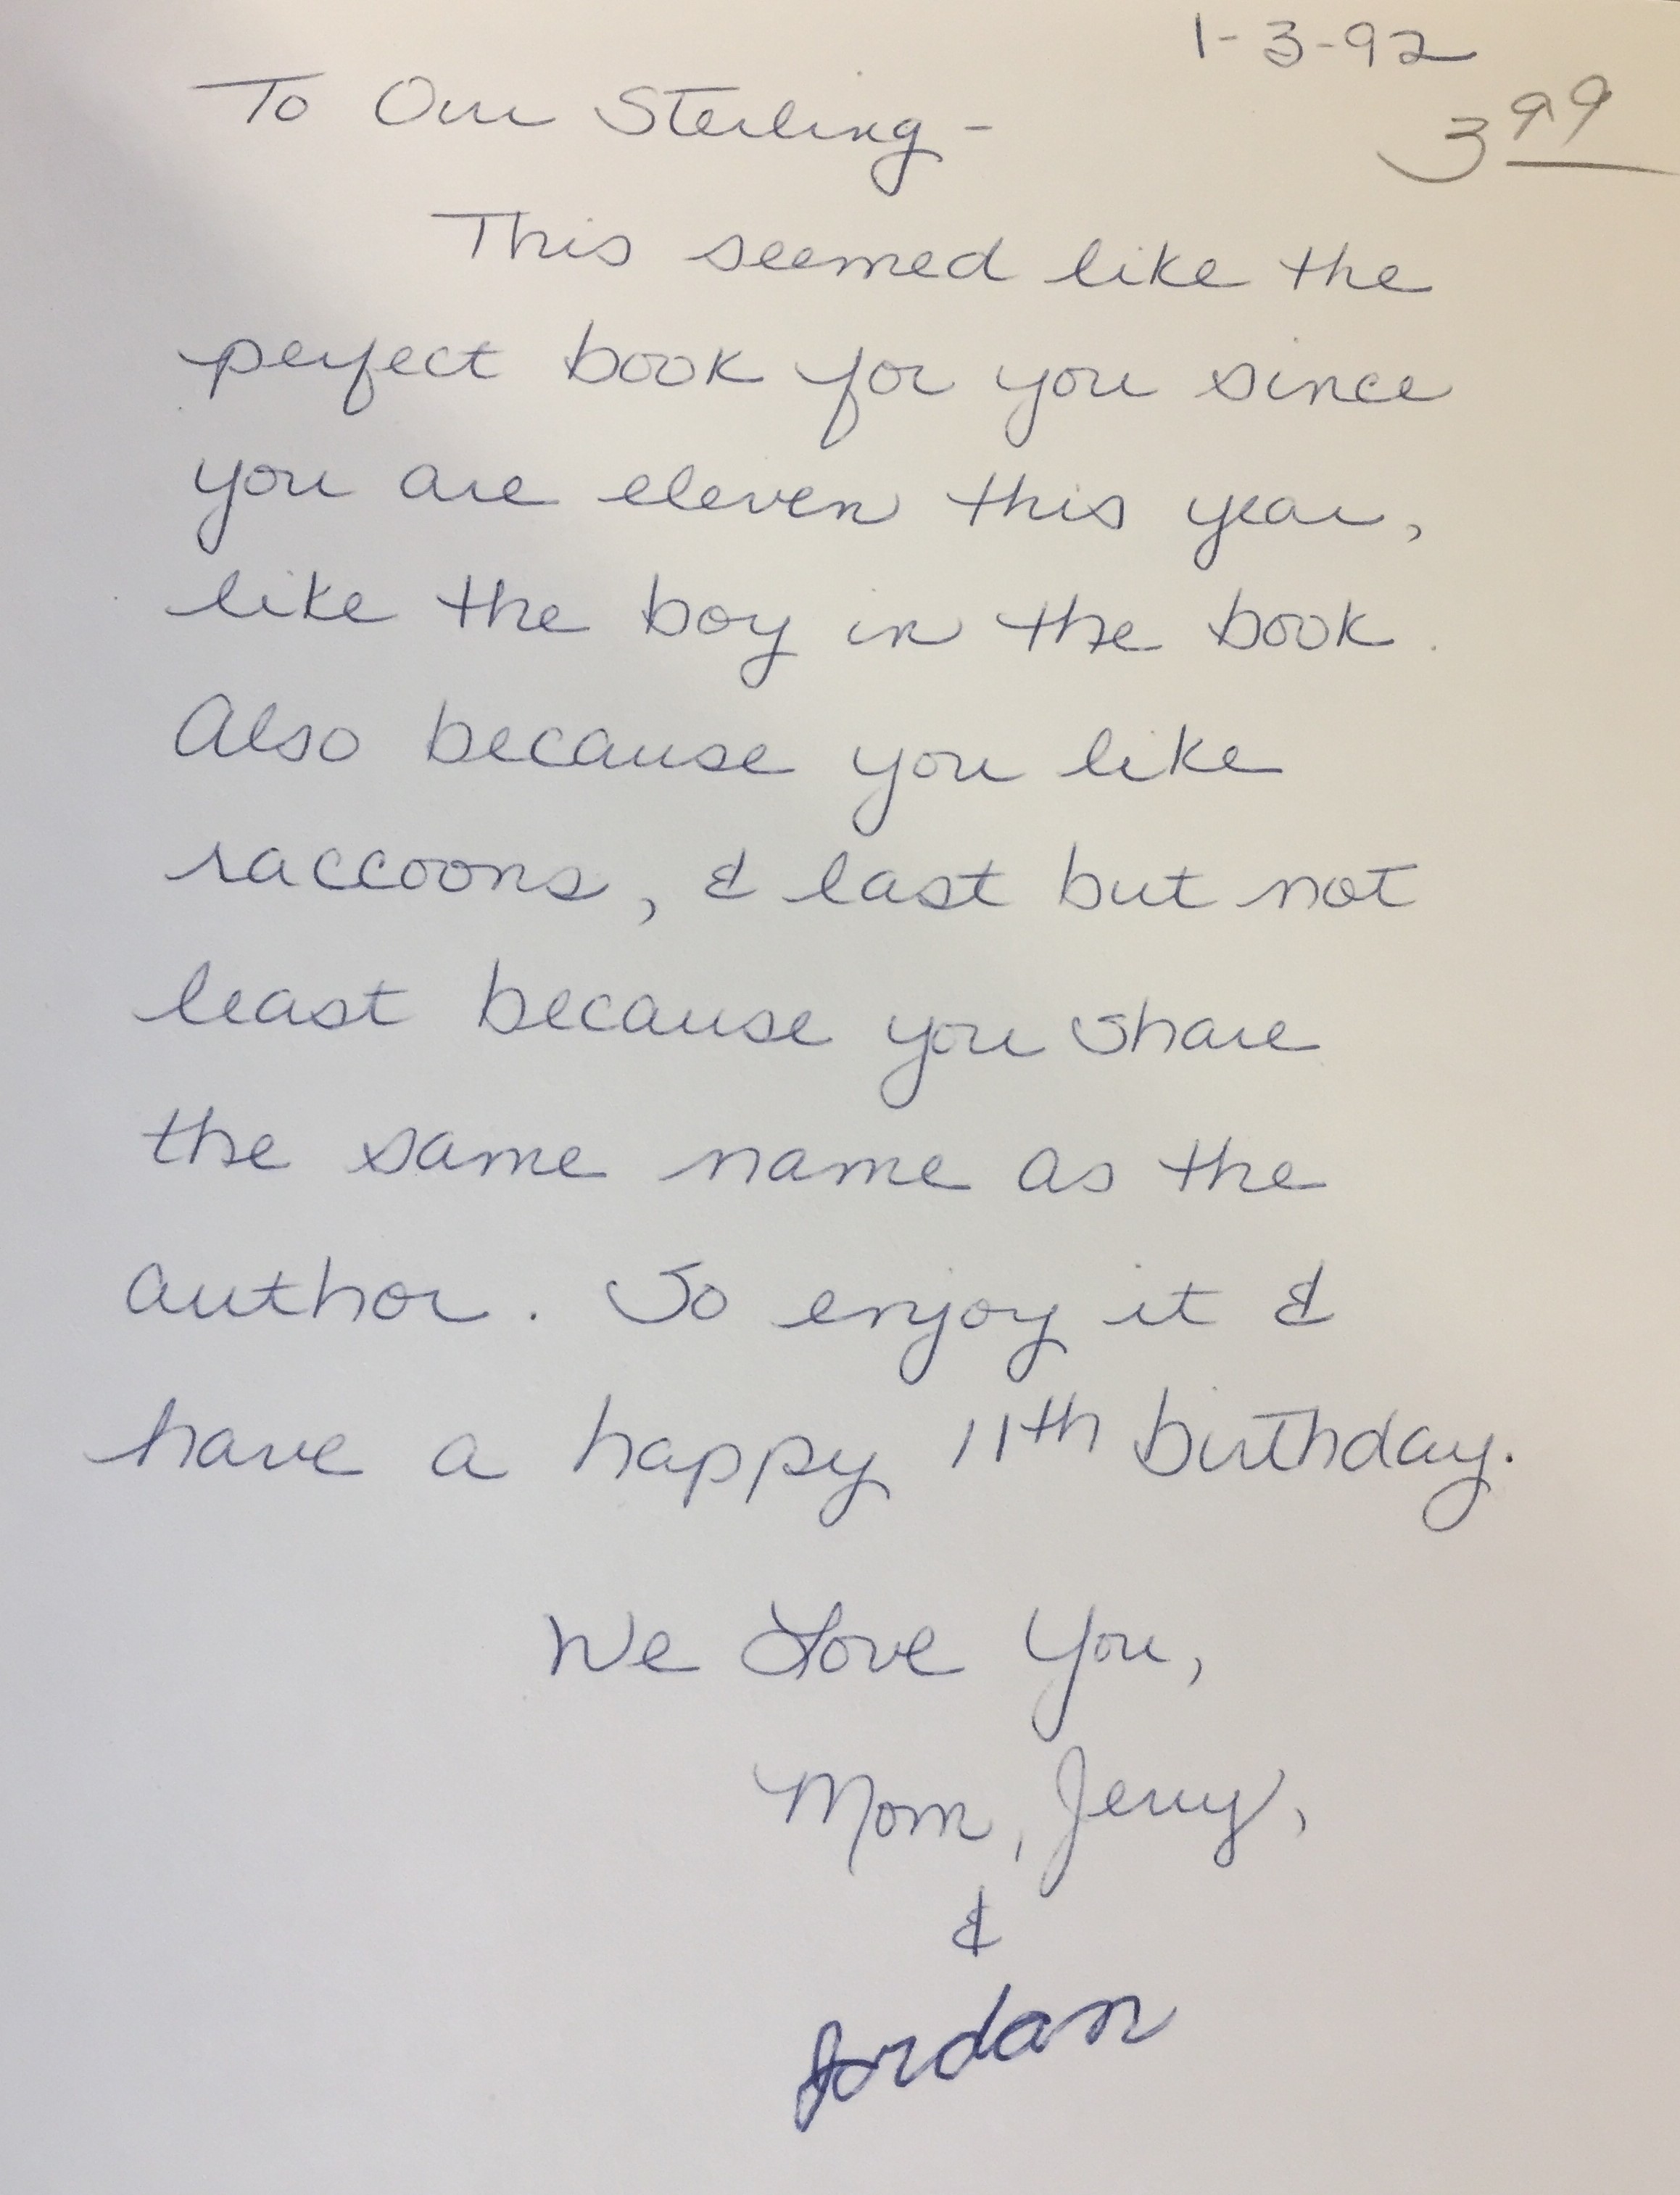 1-3-92
3 99
To Our Sterling -
This seemed like the
perfect book for you since
you are eleven this year,
like the boy in the book.
Also because you like
raccoons, & last but not
least because you share
the same name as the
author. So enjoy it &
have a happy 11th birthday.
We Love You,
Mom, Jerry,
&
Jordan